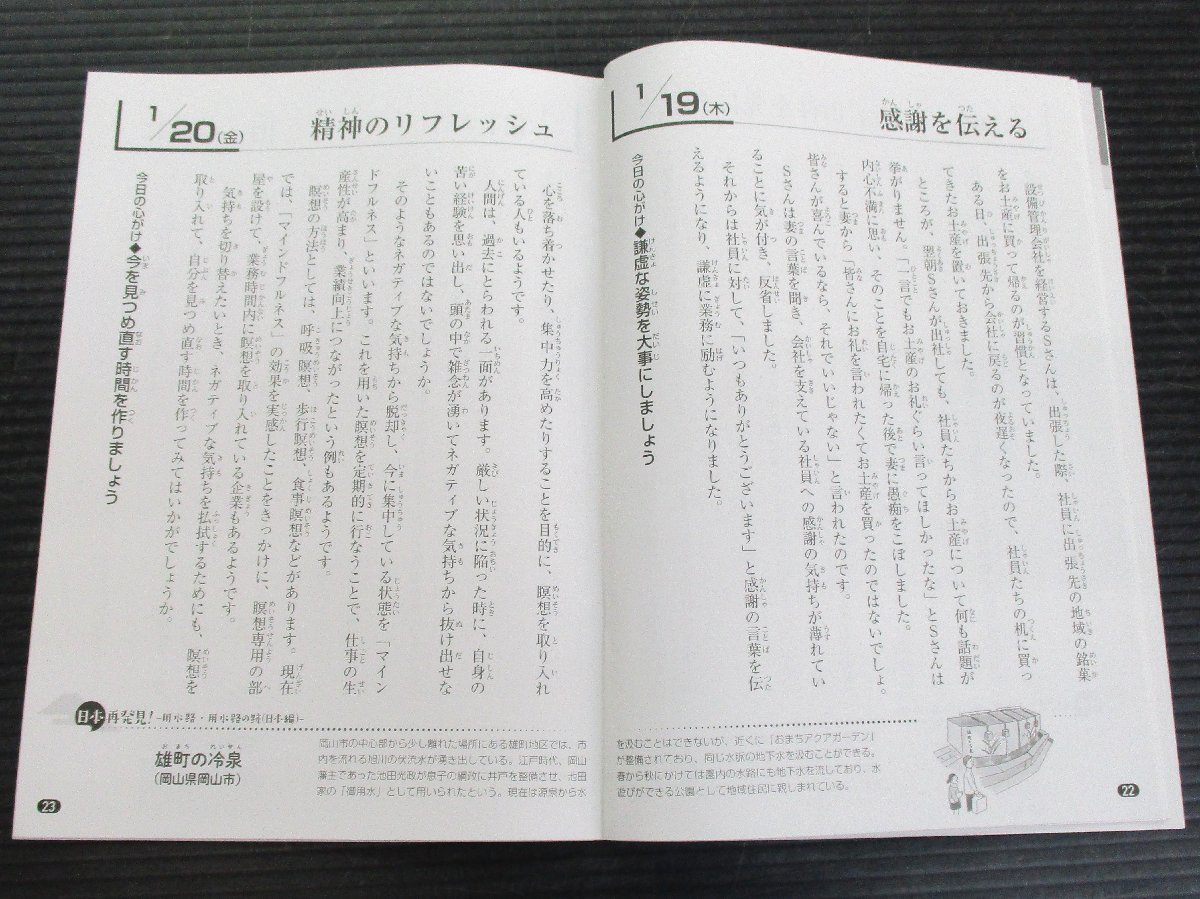 1/19(木)
感謝を伝える
設備管理会社を経営するSさんは、出張した際、社員に出張先の地域の銘菓
をお土産に買って帰るのが習慣となっていました。
ある日、出張先から会社に戻るのが夜遅くなったので、社員たちの机に買っ
てきたお土産を置いておきました。
ところが、翌朝Sさんが出社しても、社員たちからお土産について何も話題が
挙がりません。「一言でもお土産のお礼ぐらい言ってほしかったな」とSさんは
内心不満に思い、そのことを自宅に帰った後で妻に愚痴をこぼしました。
すると妻から「皆さんにお礼を言われたくてお土産を買ったのではないでしょ。
皆さんが喜んでいるなら、それでいいじゃない」と言われたのです。
Sさんは妻の言葉を聞き、会社を支えている社員への感謝の気持ちが薄れてい
ることに気が付き、反省しました。
それからは社員に対して、「いつもありがとうございます」と感謝の言葉を伝
えるようになり、謙虚に業務に励むようになりました。
今日の心がけ◆謙虚な姿勢を大事にしましょう
1/20(金)
精神のリフレッシュ
心を落ち着かせたり、集中力を高めたりすることを目的に、瞑想を取り入れ
ている人もいるようです。
人間は、過去にとらわれる一面があります。厳しい状況に陥った時に、自身の
苦い経験を思い出し、頭の中で雑念が湧いてネガティブな気持ちから抜け出せな
いこともあるのではないでしょうか。
そのようなネガティブな気持ちから脱却し、今に集中している状態を「マイン
ドフルネス」といいます。これを用いた瞑想を定期的に行なうことで、仕事の生
産性が高まり、業績向上につながったという例もあるようです。
瞑想の方法としては、呼吸瞑想、歩行瞑想、食事瞑想などがあります。現在
では、「マインドフルネス」の効果を実感したことをきっかけに、瞑想専用の部
屋を設けて、業務時間内に瞑想を取り入れている企業もあるようです。
気持ちを切り替えたいとき、ネガティブな気持ちを払拭するためにも、瞑想を
取り入れて、自分を見つめ直す時間を作ってみてはいかがでしょうか。
今日の心がけ◆今を見つめ直す時間を作りましょう
日本再発見!-用水路・用水路の跡(日本編)-
雄町の冷泉
(岡山県岡山市)
岡山市の中心部から少し離れた場所にある雄町地区では、市
内を流れる旭川の伏流水が湧き出している。江戸時代、岡山
藩主であった池田光政が息子の綱政に井戸を整備させ、池田
家の「御用水」として用いられたという。現在は源泉から水
を汲むことはできないが、近くに「おまちアクアガーデン」
が整備されており、同じ水脈の地下水を汲むことができる。
春から秋にかけては園内の水路にも地下水を流しており、水
遊びができる公園として地域住民に親しまれている。
23
22